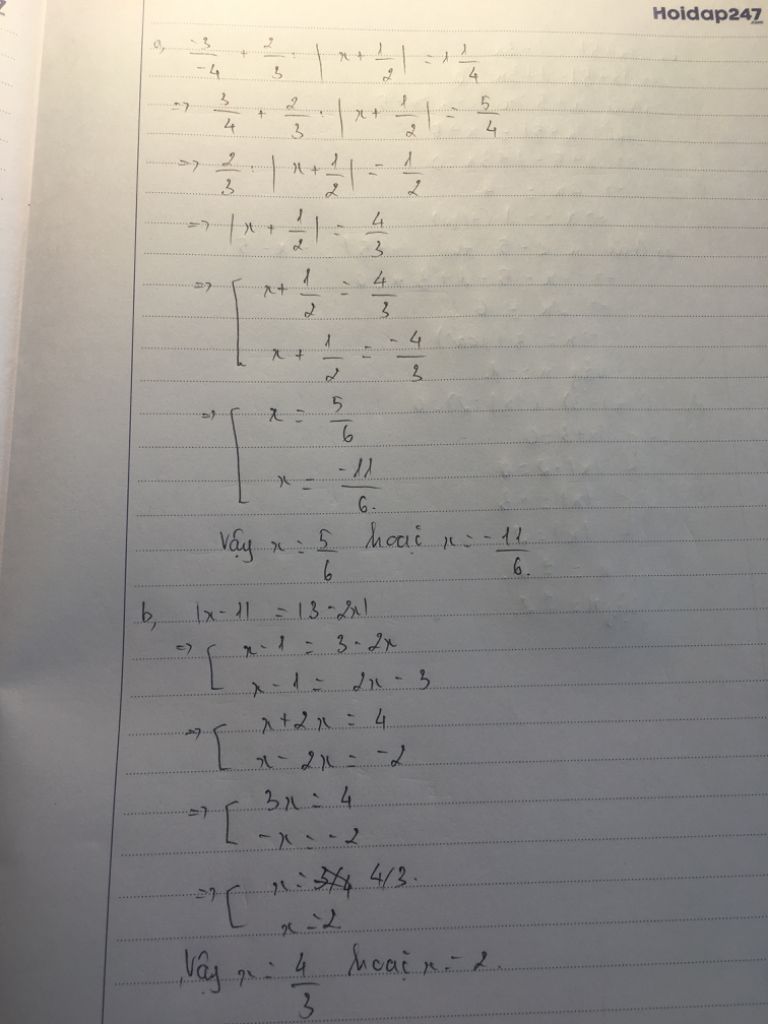 Hoidap247
.com
a, -3/-4 + 2/3 : |x + 1/2| = 1 1/4
=> 3/4 + 2/3 : |x + 1/2| = 5/4
=> 2/3 : |x + 1/2| = 1/2
=> |x + 1/2| = 4/3
=> [ x + 1/2 = 4/3
x + 1/2 = -4/3
=> [ x = 5/6
x = -11/6.
Vậy x = 5/6 hoặc x = -11/6.
b, |x - 1| = |3 - 2x|
=> [ x - 1 = 3 - 2x
x - 1 = 2x - 3
=> [ x + 2x = 4
x - 2x = -2
=> [ 3x = 4
-x = -2
=> [ x = 4/3.
x = 2
Vậy x = 4/3 hoặc x = 2.